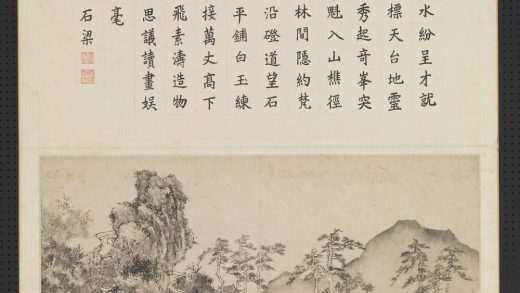 水紛呈才就
標天台地靈
秀起奇峯突
魁入山樵徑
林間隱約梵
沿磴道望石
平鋪白玉練
接萬丈高下
飛素濤造物
思議讀畫娱
毫
石梁